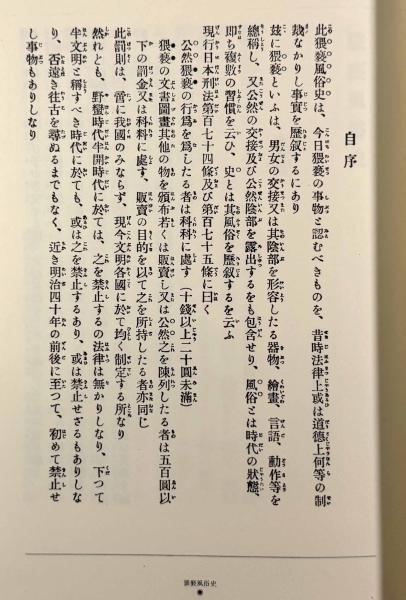 自序
此猥褻風俗史は、今日猥褻の事物と認むべきものを、昔時法律上或は道徳上何等の制
裁なかりし事實を歷叙するにあり
玆に猥褻といふは、男女の交接又は其陰部を形容したる器物、繪畫、言語、動作等を
總稱し、又公然の交接及び公然陰部を露出するをも包含せり、風俗とは時代の狀態、
即ち複數の習慣を云ひ、史とは其風俗を歷叙するを云ふ
現行日本刑法第百七十四條及び第百七十五條に曰く
公然猥褻の行爲を爲したる者は科料に處す(十錢以上二十圓未滿)
猥褻の文書圖畫其他の物を頒布若くは販賣し又は公然之を陳列したる者は五百圓以
下の罰金又は科料に處す、販賣の目的を以て之を所持したる者亦同じ
此罰則は、啻に我國のみならず、現今文明各國に於て均く制定する所なり
然れども、野蠻時代半開時代に於ては、之を禁止するの法律は無かりしなり、下つて
半文明と稱すべき時代に於ても、或は之を禁止するあり、或は禁止せざるもありしな
り、否遠き往古を尋ぬるまでもなく、近き明治四十年の前後に至つて、初めて禁止せ
し事物もありしなり
猥褻風俗史